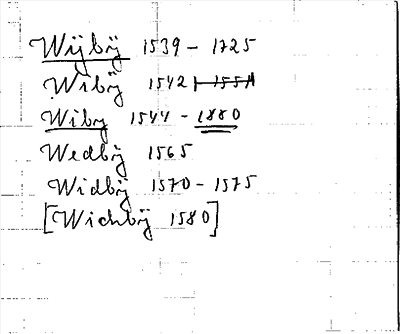 Wijbÿ 1539 - 1725
Wibÿ 1542, 1551
Wiby 1544 - 1880
Wedbÿ 1565
Widbÿ 1570 - 1575
[Wichbÿ 1580]